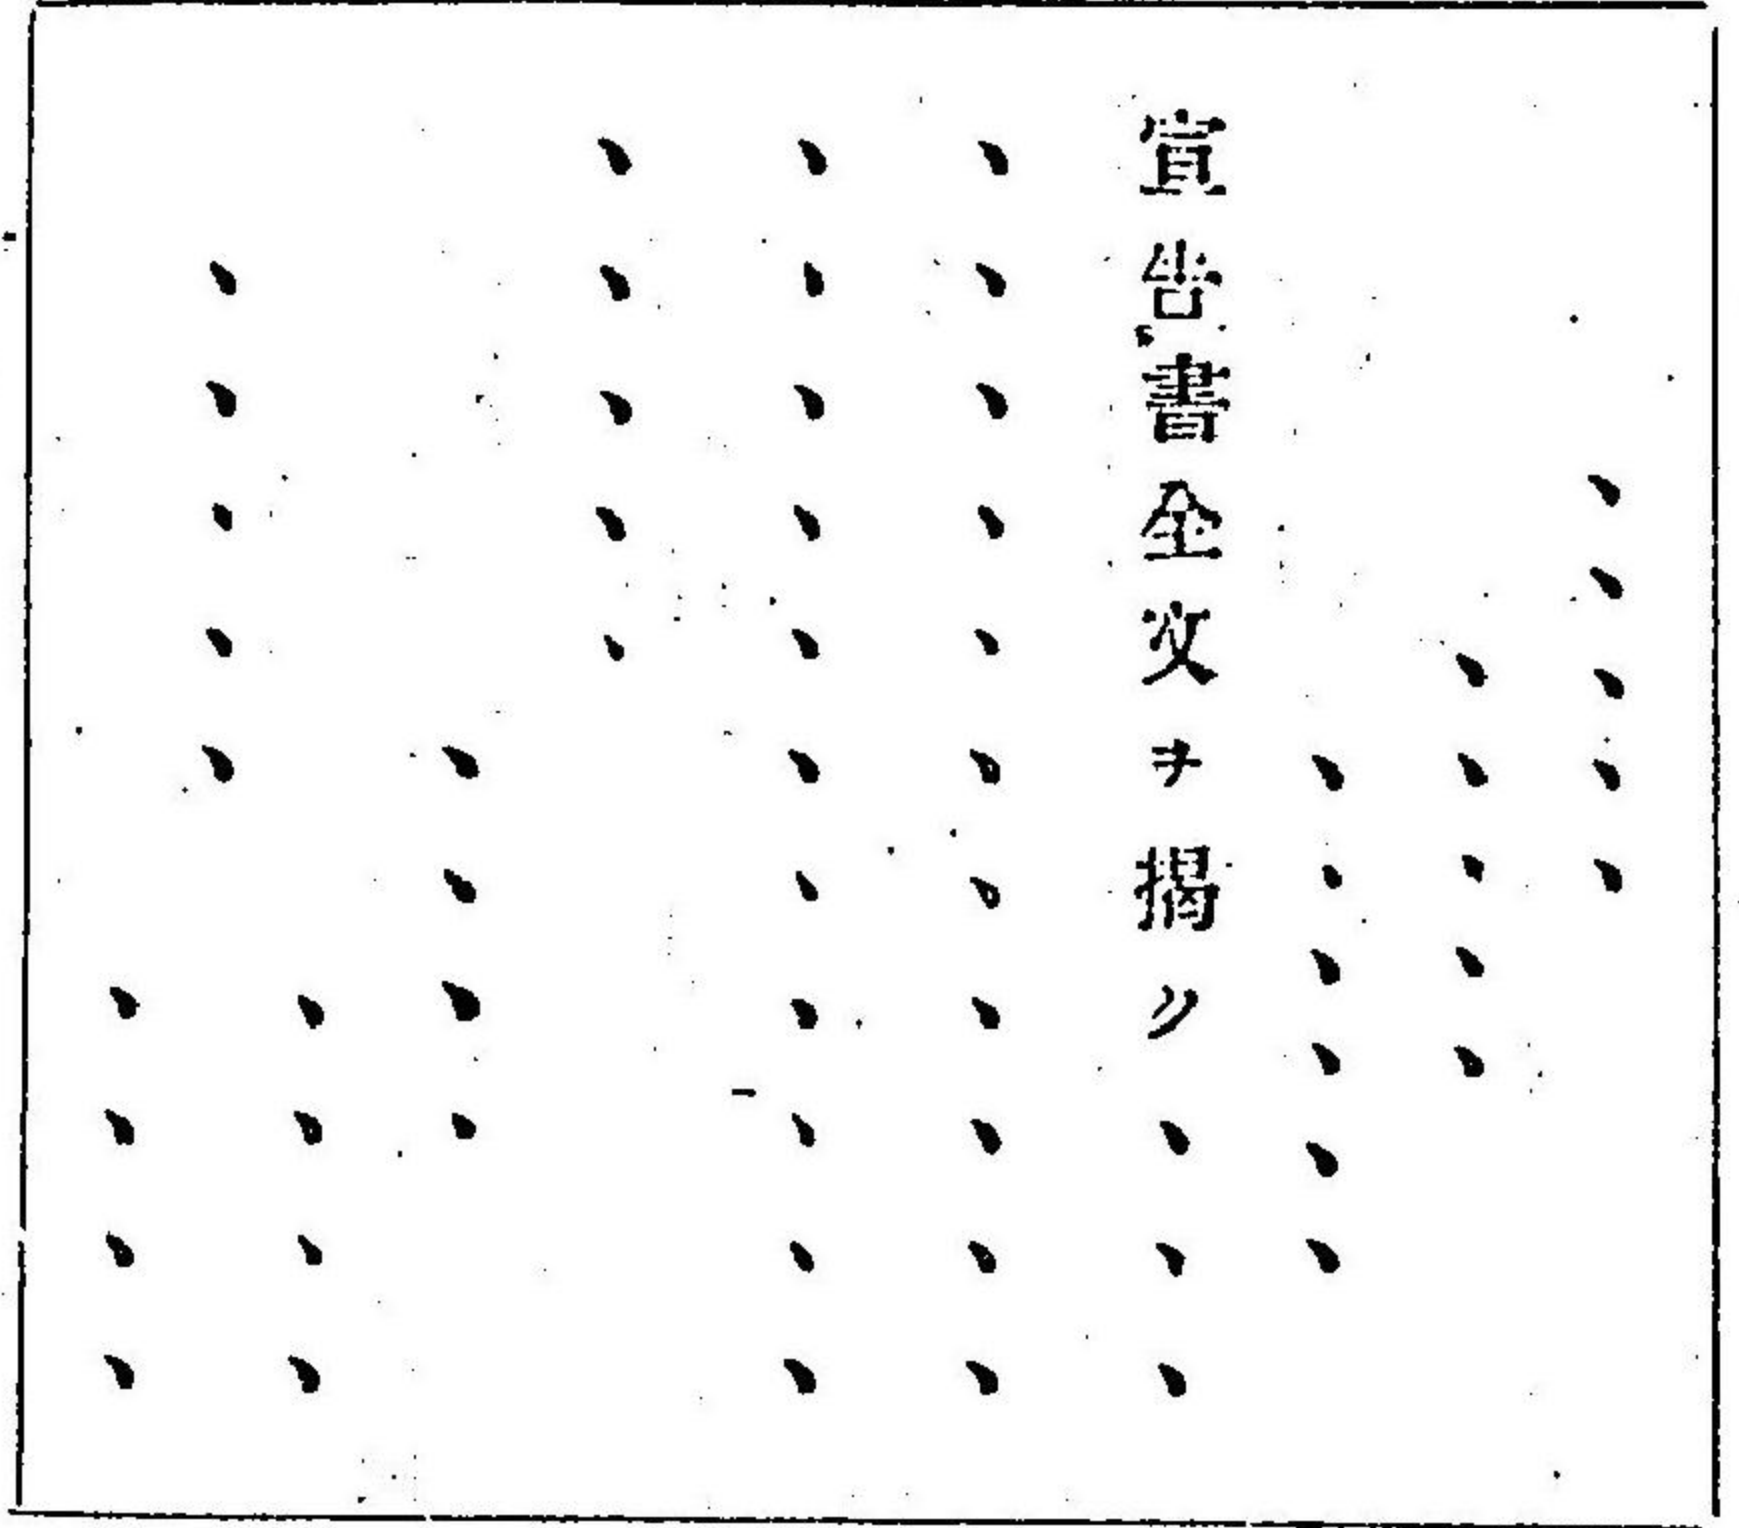 、、、、、
、、、、、
、、、、、、
宣告書全文ヲ掲ク、、、
、、、、、、、、、、、
、、、、、、、、、、、
、、、、、
、、、、
、、、、
、、、、、
、、、、